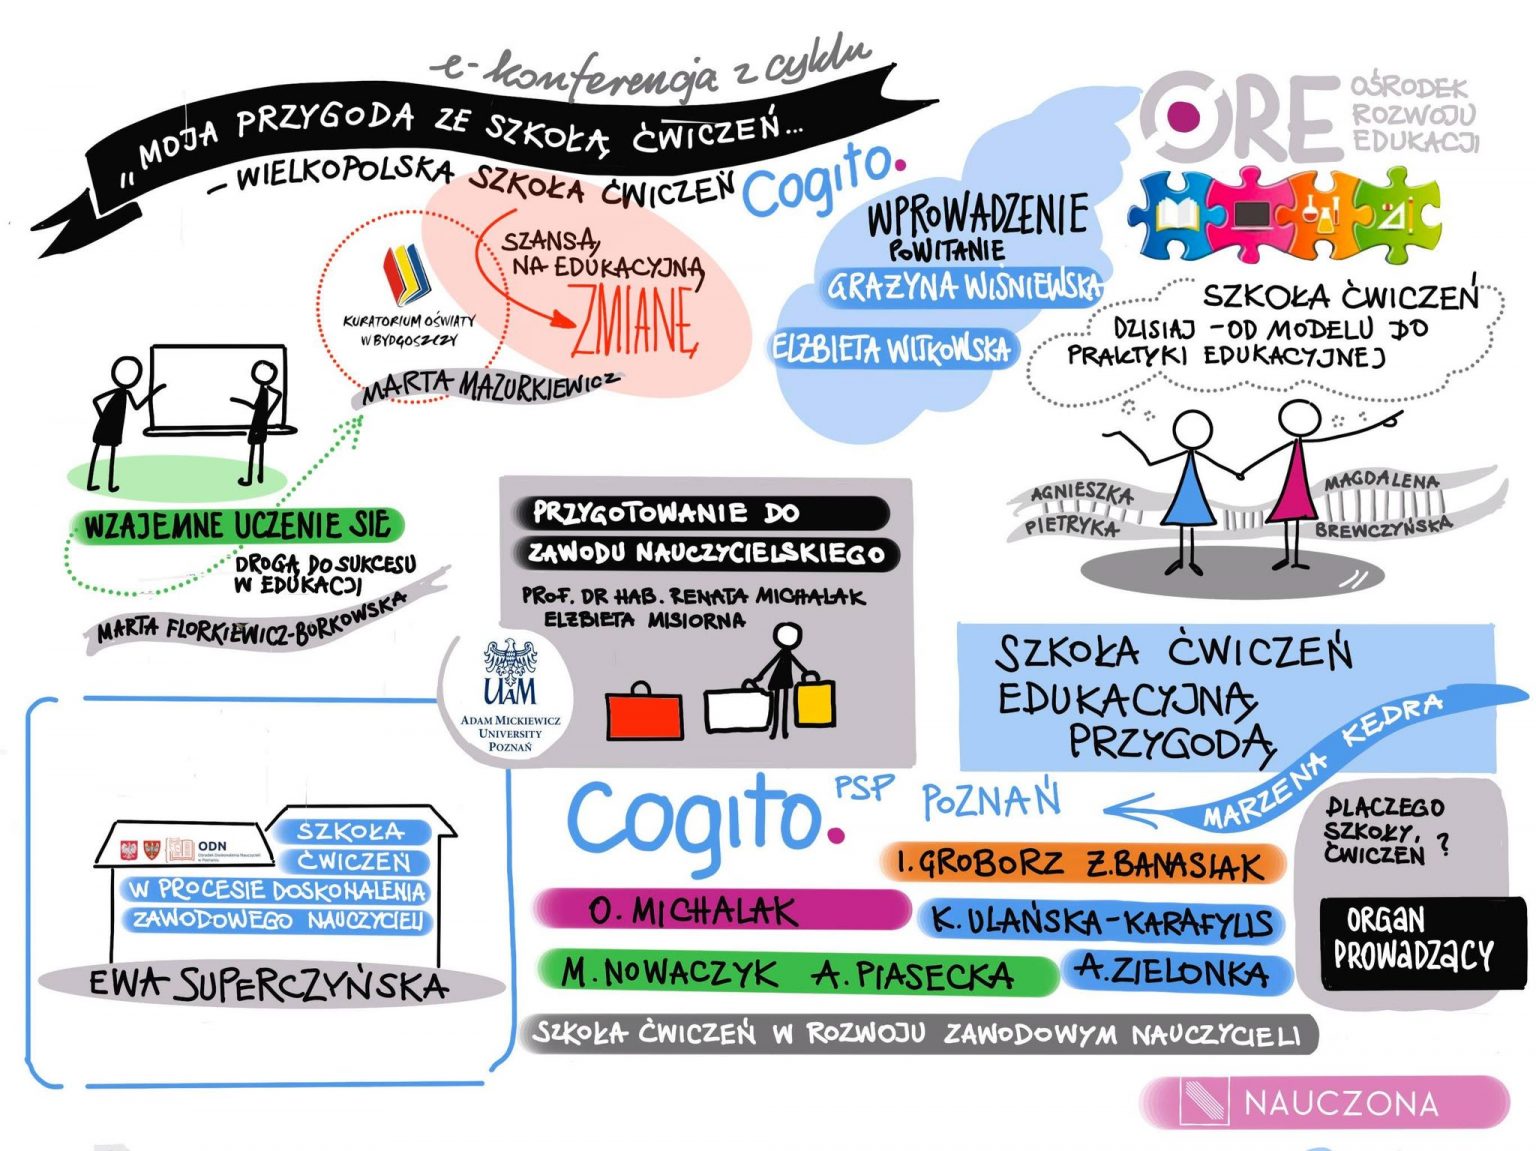 e-konferencja z cyklu
„MOJA PRZYGODA ZE SZKOŁĄ ĆWICZEŃ...
- WIELKOPOLSKA SZKOŁA ĆWICZEŃ Cogito.
SZANSĄ
NA EDUKACYJNĄ
ZMIANĘ
KURATORIUM OŚWIATY
W BYDGOSZCZY
MARTA MAZURKIEWICZ
WPROWADZENIE
POWITANIE
GRAŻYNA WIŚNIEWSKA
ELŻBIETA WITKOWSKA
ORE
OŚRODEK
ROZWOJU
EDUKACJI
SZKOŁA ĆWICZEŃ
DZISIAJ - OD MODELU DO
PRAKTYKI EDUKACYJNEJ
AGNIESZKA
PIETRYKA
MAGDALENA
BREWCZYŃSKA
WZAJEMNE UCZENIE SIĘ
DROGĄ DO SUKCESU
W EDUKACJI
MARTA FLORKIEWICZ-BORKOWSKA
PRZYGOTOWANIE DO
ZAWODU NAUCZYCIELSKIEGO
PROF. DR HAB. RENATA MICHALAK
ELŻBIETA MISIORNA
UAM
ADAM MICKIEWICZ
UNIVERSITY
POZNAŃ
SZKOŁA ĆWICZEŃ
EDUKACYJNĄ
PRZYGODĄ
MARZENA KĘDRA
Cogito. PSP POZNAŃ
DLACZEGO
SZKOŁY
ĆWICZEŃ ?
ORGAN
PROWADZĄCY
I. GROBORZ Ż. BANASIAK
O. MICHALAK
K. ULAŃSKA-KARAFYLIS
M. NOWACZYK A. PIASECKA
A. ZIELONKA
SZKOŁA ĆWICZEŃ W ROZWOJU ZAWODOWYM NAUCZYCIELI
ODN
Ośrodek Doskonalenia Nauczycieli
w Poznaniu
SZKOŁA
ĆWICZEŃ
W PROCESIE DOSKONALENIA
ZAWODOWEGO NAUCZYCIELI
EWA SUPERCZYŃSKA
NAUCZONA